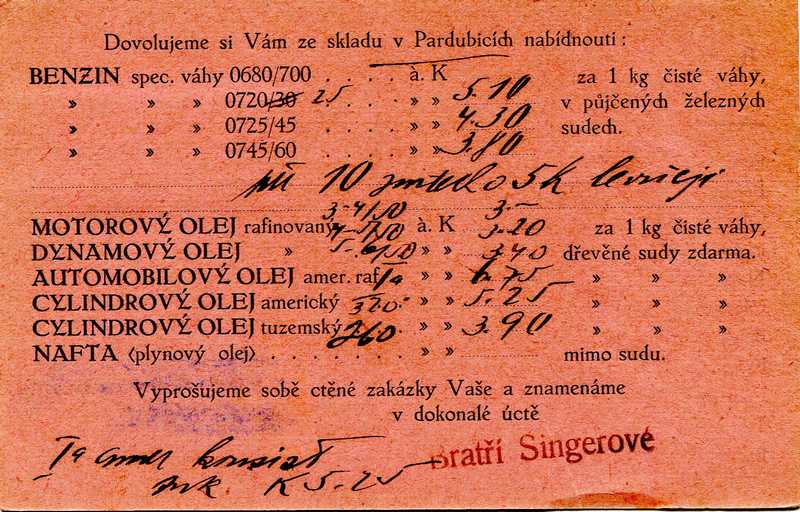 Dovolujeme si Vám ze skladu v Pardubicích nabídnouti:
BENZIN spec. váhy 0680/700 . . . . . à. K za 1 kg čisté váhy,
» » » 0720/30 25 . . . » » 5.10 v půjčených železných
» » » 0725/45 . . . . » » 4.30 sudech.
» » » 0745/60 . . . . » » 3.80
při 10 5K levněji
MOTOROVÝ OLEJ rafinovaný à. K 3.20 za 1 kg čisté váhy,
DYNAMOVÝ OLEJ » » » 3.40 dřevěné sudy zdarma.
AUTOMOBILOVÝ OLEJ amer. raf. Ia » » 6.75 » » »
CYLINDROVÝ OLEJ americký 320.- » » 5.25 » » »
CYLINDROVÝ OLEJ tuzemský 260 » » 3.90 » » »
NAFTA (plynový olej) . . . . . . . » » mimo sudu.
Vyprošujeme sobě ctěné zakázky Vaše a znamenáme
v dokonalé úctě
Bratří Singerové
Ia amer
K 5.25